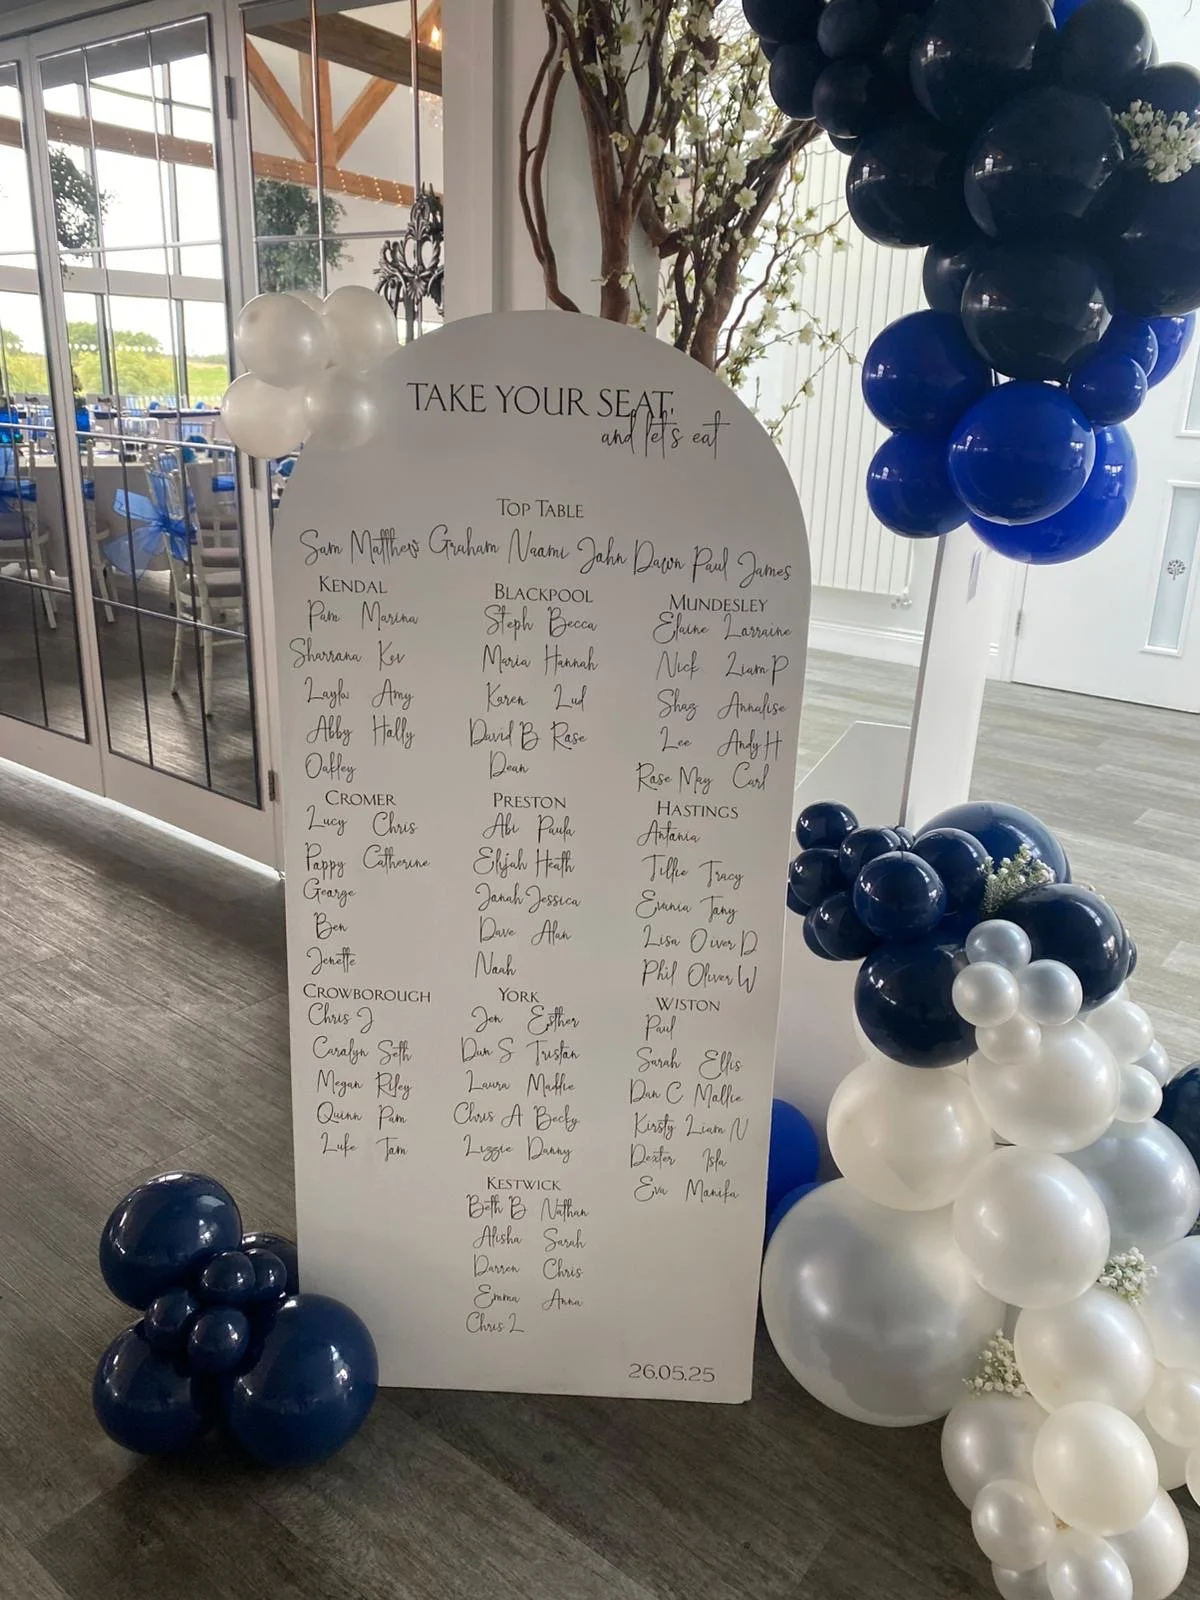 TAKE YOUR SEAT,
and let's eat
TOP TABLE
Sam Matthew Graham Naomi John Dawn Paul James
KENDAL
Pam Marina
Sharrana Kev
Layla Amy
Abby Holly
Oakley
CROMER
Lucy Chris
Poppy Catherine
George
Ben
Jenette
CROWBOROUGH
Chris J
Caralyn Seth
Megan Riley
Quinn Pam
Luke Tom
BLACKPOOL
Steph Becca
Maria Hannah
Karen Lud
David B Rose
Dean
PRESTON
Abi Paula
Elijah Heath
Jonah Jessica
Dave Alan
Noah
YORK
Jen Esther
Dan S Tristan
Laura Maddie
Chris A Becky
Lizzie Danny
KESTWICK
Beth B Nathan
Alisha Sarah
Darren Chris
Emma Anna
Chris L
MUNDESLEY
Elaine Lorraine
Nick Liam P
Shaz Annalise
Lee Andy H
Rose May Carl
HASTINGS
Antonia
Tillie Tracy
Evania Tony
Lisa Oiver D
Phil Oliver W
WISTON
Paul
Sarah Ellis
Dan C Mollie
Kirsty Liam N
Dexter Isla
Eva Monika
26.05.25